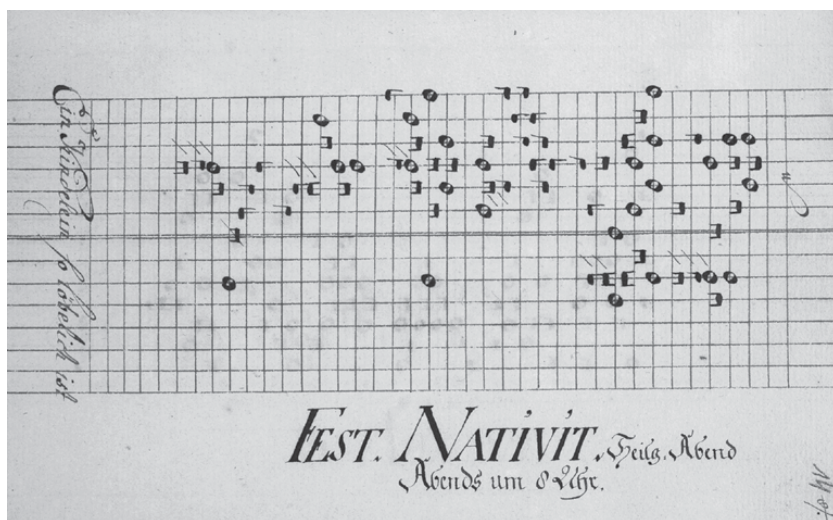 Ein Kindelein so löbelich ist
FEST. NATIVIT. Heilg. Abend
Abends um 8 Uhr.